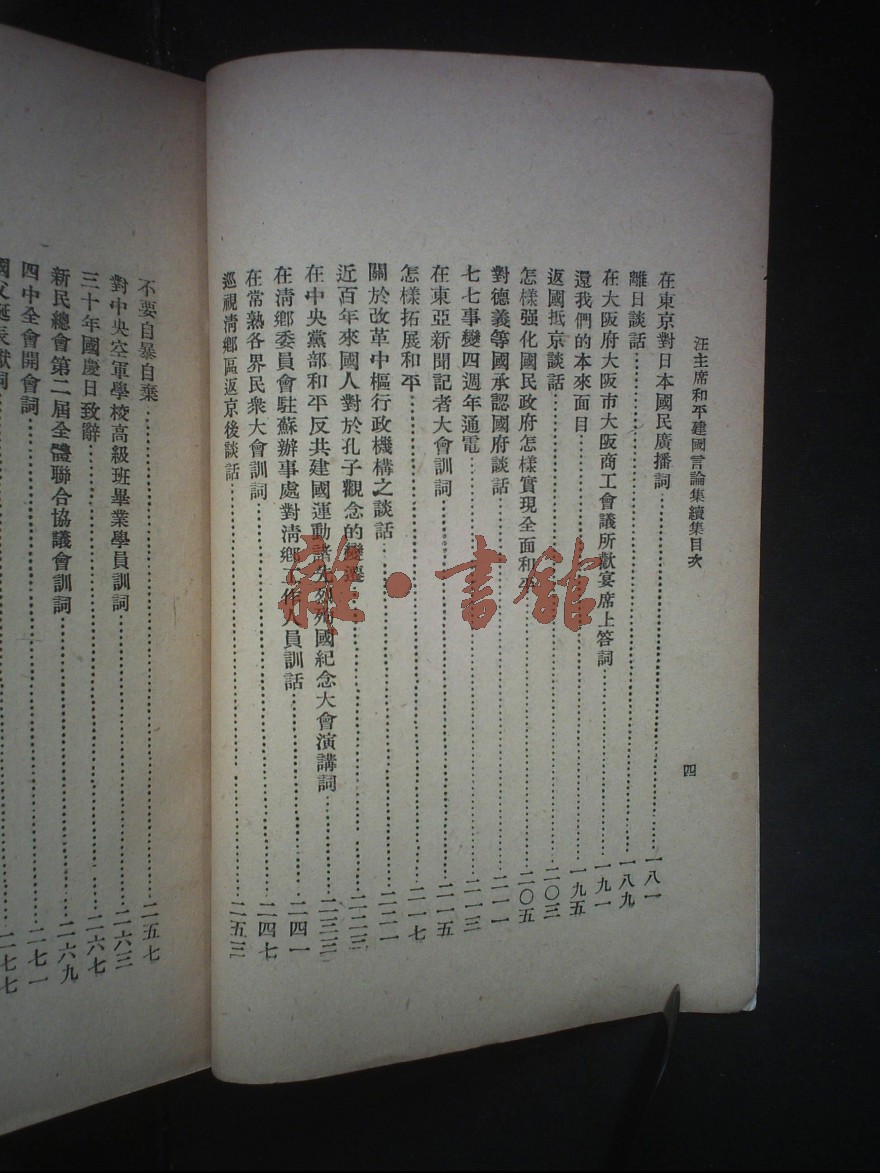 汪主席和平建國言論集續集目次
四
在東京對日本國民廣播詞……一八一
離日談話……一八九
在大阪府大阪市大阪商工會議所歡宴席上答詞……一九一
還我們的本來面目……一九五
返國抵京談話……二〇三
怎樣强化國民政府怎樣實現全面和平……二〇五
對德義等國承認國府談話……二一一
七七事變四週年通電……二一三
在東亞新聞記者大會訓詞……二一五
怎樣拓展和平……二一七
關於改革中樞行政機構之談話……二二一
近百年來國人對於孔子觀念的變遷……二二三
在中央黨部和平反共建國運動諸先烈殉國紀念大會演講詞……二三三
在清鄉委員會駐蘇辦事處對清鄉工作人員訓話……二四一
在常熟各界民衆大會訓詞……二四七
巡視清鄉區返京後談話……二五三
不要自暴自棄……二五七
對中央空軍學校高級班畢業學員訓詞……二六三
三十年國慶日致辭……二六七
新民總會第二屆全體聯合協議會訓詞……二六九
四中全會開會詞……二七一
國父誕辰獻詞……二七七
雜·書館